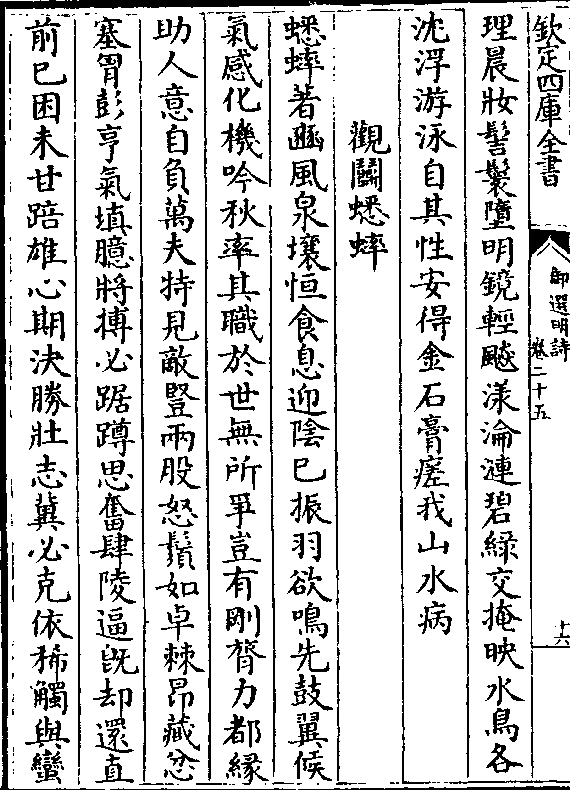 欽定四庫全書
御選明詩
卷二十五
十六
理晨妝髻鬟墮明鏡輕颸漾淪漣碧綠交掩映水鳥各
沈浮游泳自其性安得金石膏瘥我山水病
觀鬭蟋蟀
蟋蟀著豳風泉壤恒食息迎陰已振羽欲鳴先鼓翼候
氣感化機吟秋率其職於世無所爭豈有剛膂力都緣
助人意自負萬夫特見敵豎兩股怒鬚如卓棘昂藏忿
塞胷彭亨氣填臆將搏必踞蹲思奮肆陵逼旣却還直
前已困未甘踣雄心期決勝壯志冀必克依稀觸與蠻